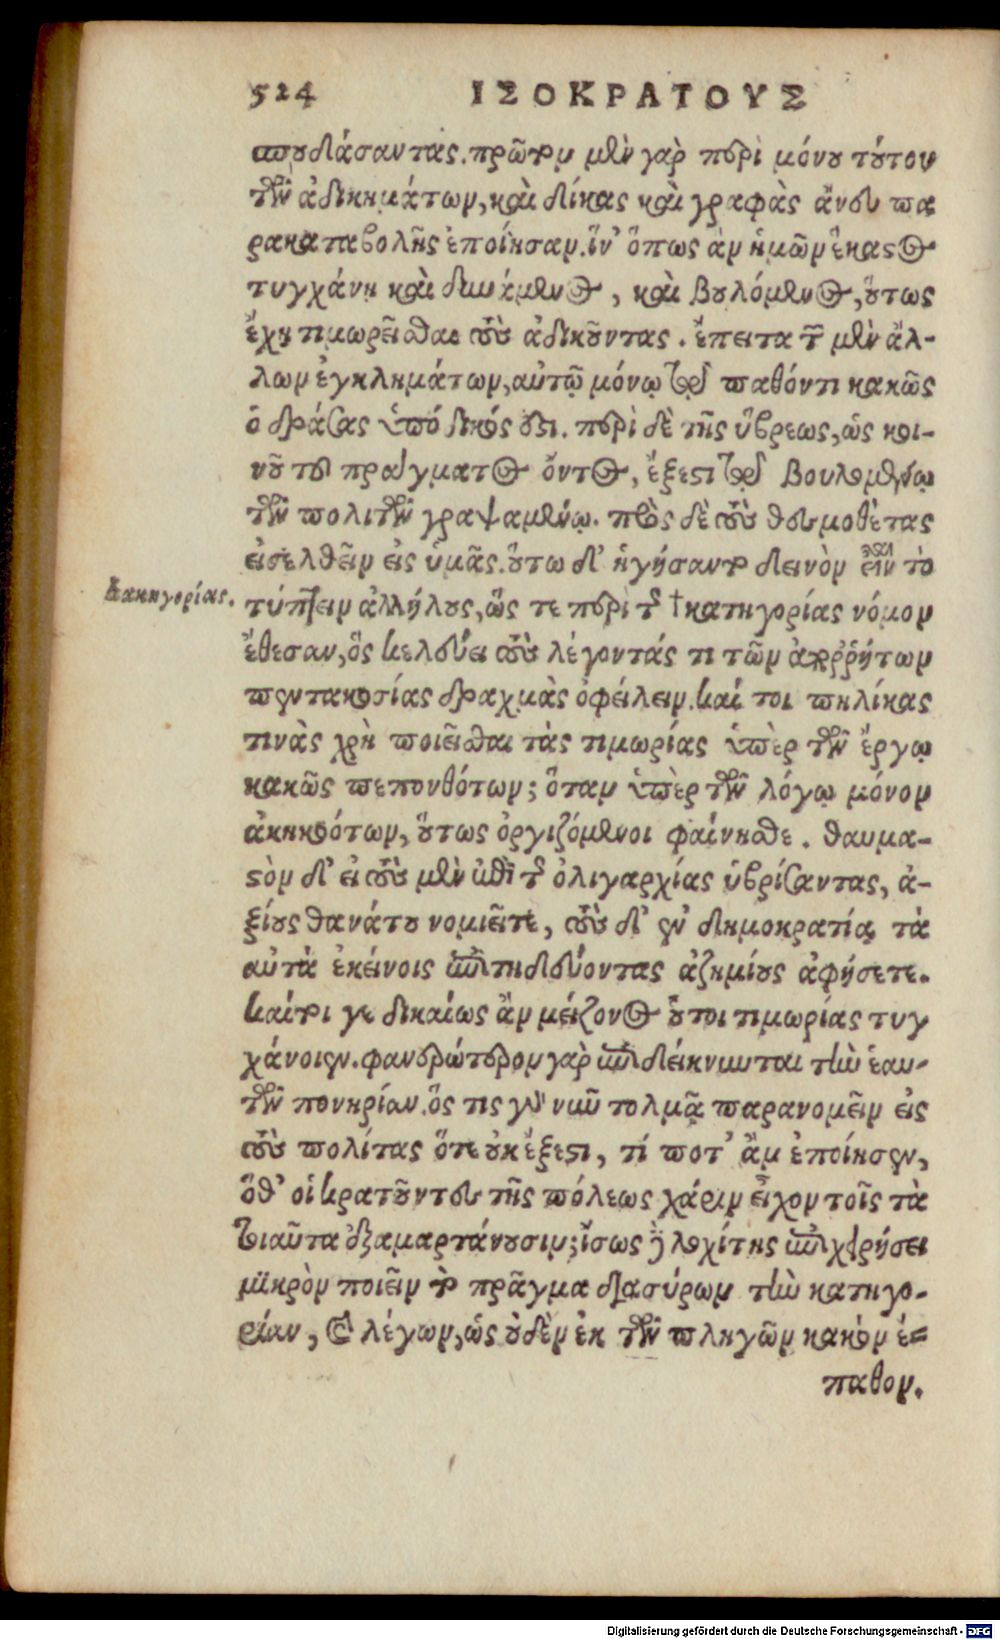 524 ΙΣΟΚΡΑΤΟΥΣ
σπουδάσαντας. πρῶτον μὲν γὰρ περὶ μόνου τούτου
τῶν ἀδικημάτων, καὶ δίκας καὶ γραφὰς ἄνευ πα
ρακαταβολῆς ἐποίησαν. ἵν' ὅπως ἂν ἡμῶν ἕκαστος
τυγχάνῃ καὶ δυνάμενος, καὶ βουλόμενος, οὕτως
ἔχῃ τιμωρεῖσθαι τοὺς ἀδικοῦντας. ἔπειτα τῶν μὲν ἄλ-
λων ἐγκλημάτων, αὐτῷ μόνῳ τῷ παθόντι κακῶς
ὁ δράσας ὑπόδικός ἐστι. περὶ δὲ τῆς ὕβρεως, ὡς κοι-
νοῦ τοῦ πράγματος ὄντος, ἔξεστι τῷ βουλομένῳ
τῶν πολιτῶν γραψαμένῳ. πρὸς δὲ τοὺς θεσμοθέτας
εἰσελθεῖν εἰς ὑμᾶς. οὕτω δ' ἡγήσαντο δεινὸν εἶναι τὸ
τύπτειν ἀλλήλους, ὥς τε περὶ τῆς †κατηγορίας νόμον
κακηγορίας.
ἔθεσαν, ὃς κελεύει τοὺς λέγοντάς τι τῶν ἀποῤῥήτων
πεντακοσίας δραχμὰς ὀφείλειν. καί τοι πηλίκας
τινὰς χρὴ ποιεῖσθαι τὰς τιμωρίας ὑπὲρ τῶν ἔργῳ
κακῶς πεπονθότων; ὅταν ὑπὲρ τῶν λόγῳ μόνον
ἀκηκοότων, οὕτως ὀργιζόμενοι φαίνησθε. θαυμα-
στὸν δ' εἰ τοὺς μὲν ἐπὶ τῆς ὀλιγαρχίας ὑβρίσαντας, ἀ-
ξίους θανάτου νομιεῖτε, τοὺς δ' ἐν δημοκρατίᾳ τὰ
αὐτὰ ἐκείνοις ἐπιτηδεύοντας ἀζημίους ἀφήσετε.
καίτοι γε δικαίως ἂν μείζονος οὗτοι τιμωρίας τυγ
χάνοιεν. φανερώτερον γὰρ ἐπιδείκνυνται τὴν ἑαυ-
τῶν πονηρίαν. ὅς τις γὰρ νῦν τολμᾷ παρανομεῖν εἰς
τοὺς πολίτας ὅτε οὐκ ἔξεστι, τί ποτ' ἂν ἐποίησεν,
ὅθ' οἱ κρατοῦντες τῆς πόλεως χάριν εἶχον τοῖς τὰ
τοιαῦτα ἐξαμαρτάνουσιν; ἴσως οὖν λοχίτης ἐπιχειρήσει
μικρὸν ποιεῖν τὸ πρᾶγμα διασύρων τὴν κατηγο-
ρίαν, καὶ λέγων, ὡς οὐδὲν ἐκ τῶν πληγῶν κακὸν ἔ-
παθον.
Digitalisierung gefördert durch die Deutsche Forschungsgemeinschaft - DFG